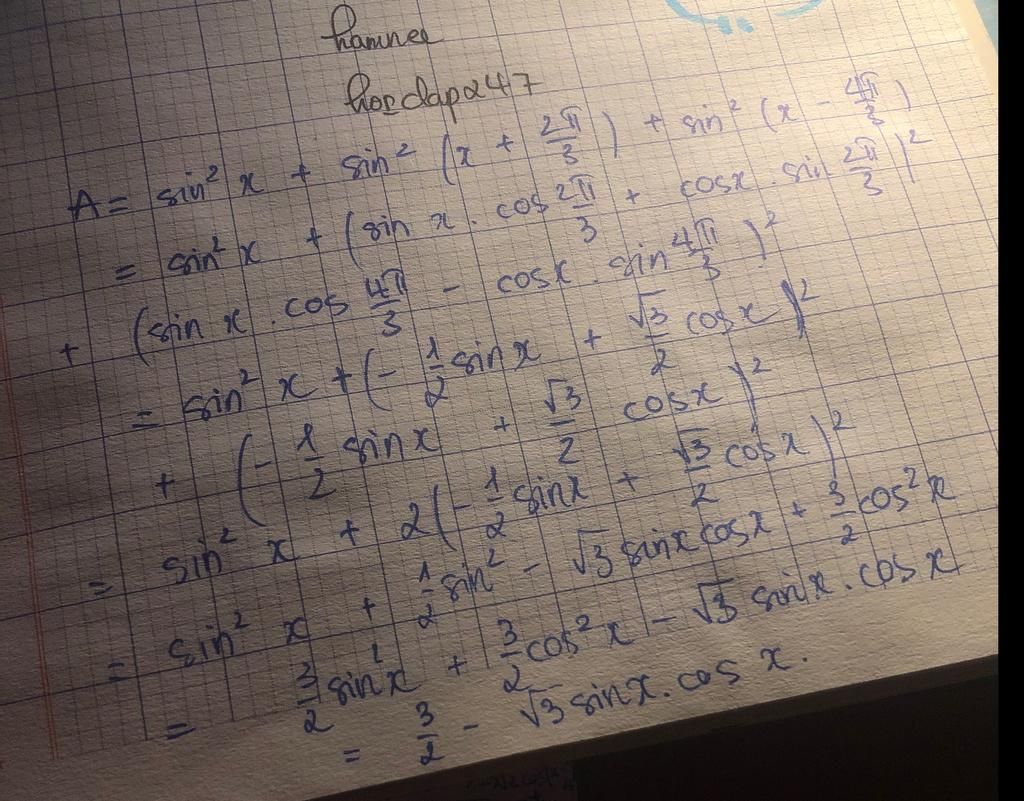 hamnee
hoidap247
A = sin² x + sin² (x + 2π/3) + sin² (x - 4π/3)
= sin² x + (sin x . cos 2π/3 + cosx . sin 2π/3)²
+ (sin x . cos 4π/3 - cosx . sin 4π/3)²
= sin² x + (- 1/2 sinx + √3/2 cosx)²
+ (- 1/2 sinx + √3/2 cosx)²
= sin² x + 2(- 1/2 sinx + √3/2 cosx)²
= sin² x + 1/2 sin² - √3 sinx cosx + 3/2 cos² x
= 3/2 sin²x + 3/2 cos² x - √3 sinx . cosx
= 3/2 - √3 sinx . cos x .